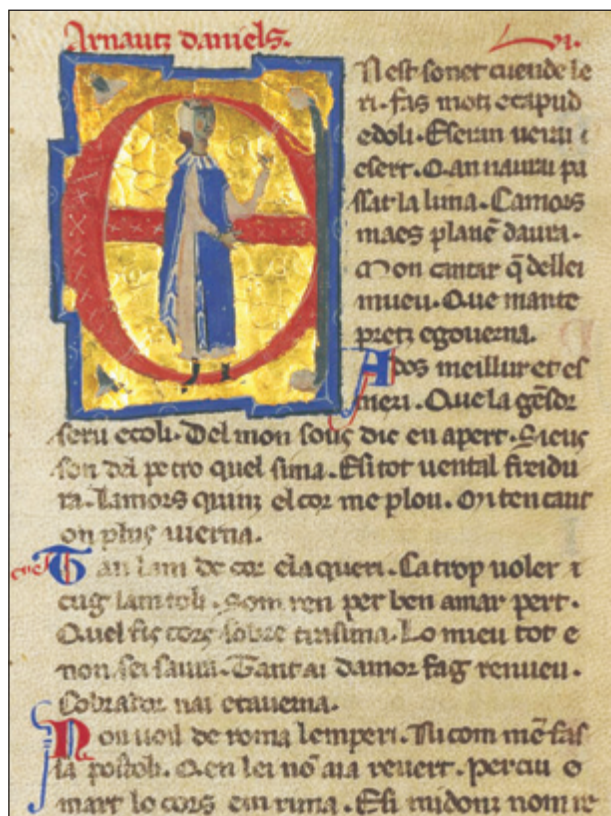 Arnautz daniels. vi.
N est sonet cuende le
ri. fas motz e capud
e doli. E seran uerai i
esert. Q an naurai pa
ssat la lima. C amors
maes plane daura.
M on cantar q̃ dellei
mueu. Q ue mante
pretz egouerna.
A dos meillur et es
meri. Q ue la gẽsor
seru ecoli. D el mon sous dic en apert. S ieus
son del pe tro quel sima. E si tot uental freidu
ra. L amors quinz el cor me plou. M i ten caut
on plus iuerna.
T an lam de cor e la queri. C a trop uoler i
cug lam toli. S om ren per ben amar pert.
Q uel sieus cors sobre tirasima. L o mieu tot e
non sei saura. T ant ai damor fag renueu.
C obrador nai e tauerna.
N on uoil de roma lemperi. N i com me fas
la postoli. Q en lei nõ aia reuert. per cui o
mart lo cors em rima. E si midonz nom re